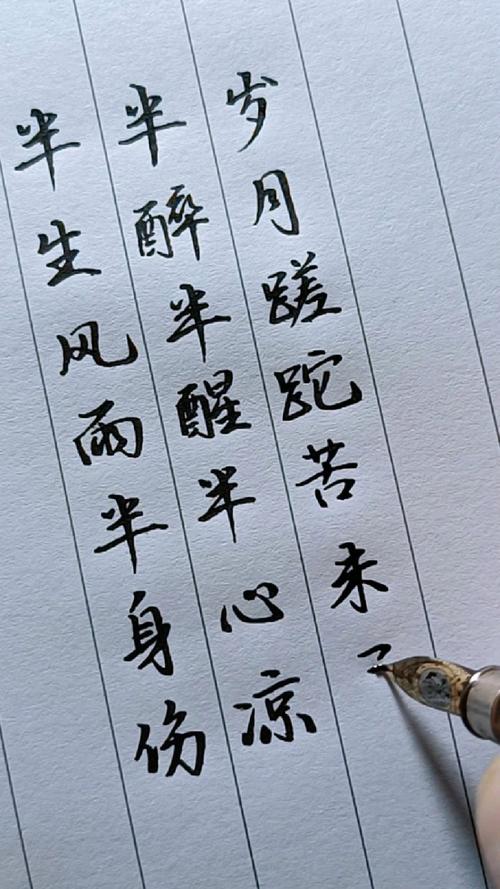 半生风雨半身伤
半醉半醒半心凉
岁月蹉跎苦未